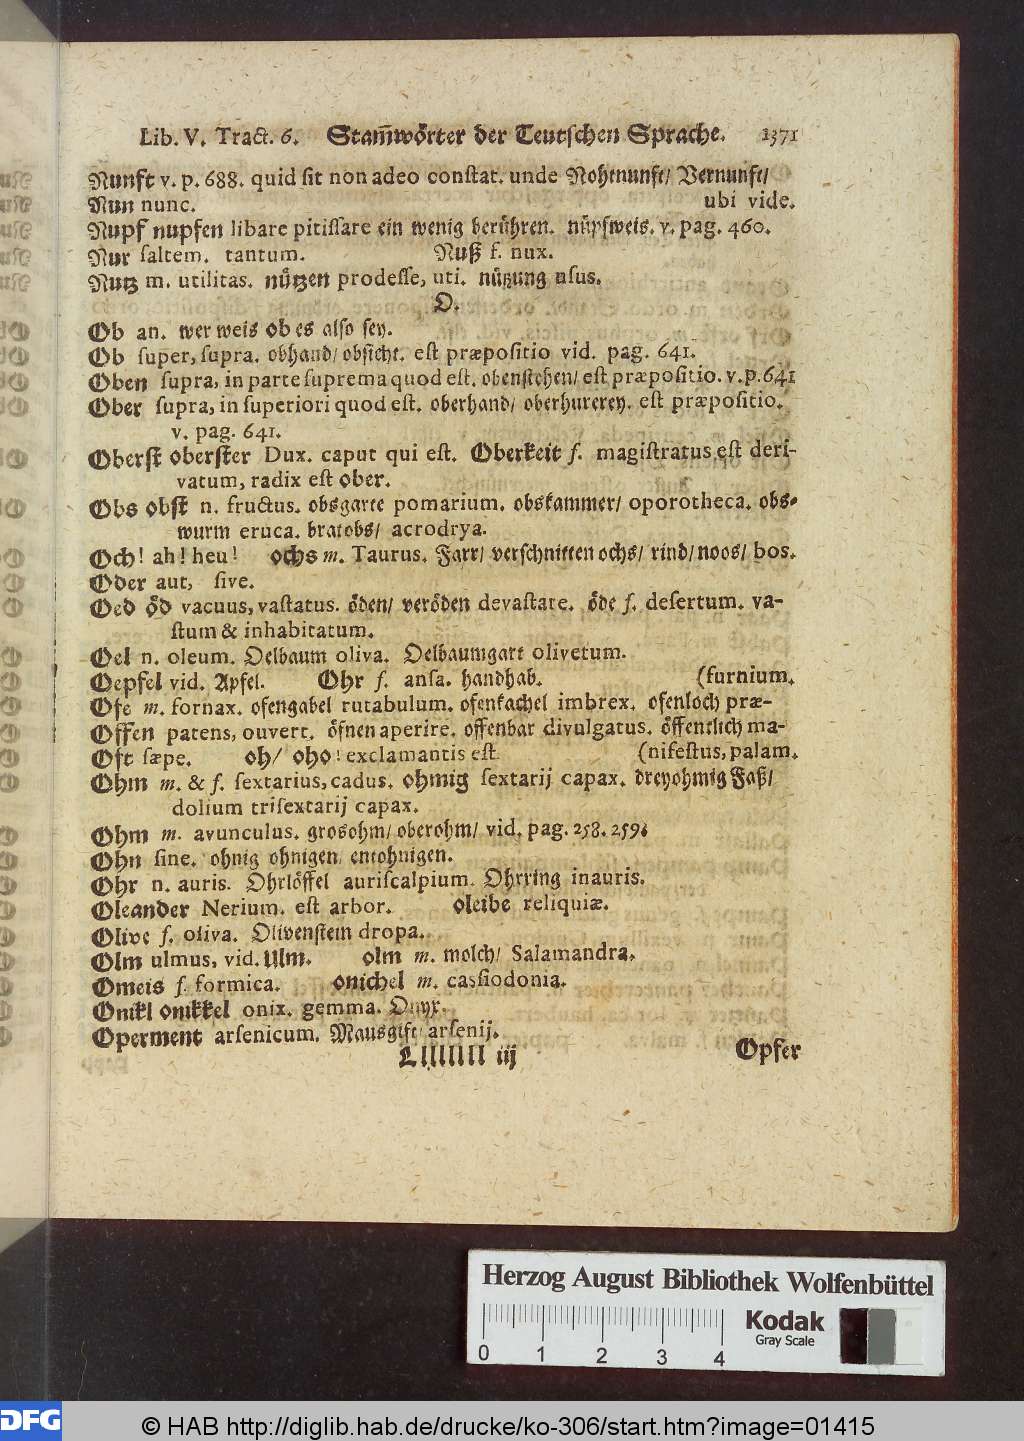 Lib. V. Tract. 6. Stam̃wörter der Teutschen Sprache. 1371
Nunft v. p. 688. quid sit non adeo constat. unde Nohtnunft/ Vernunft/
Nun nunc. ubi vide.
Nupf nupfen libare pitissare ein wenig berühren. nüpfweis. v. pag. 460.
Nur saltem. tantum. Nuß f. nux.
Nutz m. utilitas. nützen prodesse, uti. nützung usus.
O.
Ob an. wer weis ob es also sey.
Ob super, supra. obhand/ obsicht. est præpositio vid. pag. 641.
Oben supra, in parte suprema quod est. obenstehen/ est præpositio. v. p. 641
Ober supra, in superiori quod est. oberhand/ oberhurerey. est præpositio.
v. pag. 641.
Oberst oberster Dux. caput qui est. Oberkeit f. magistratus est deri-
vatum, radix est ober.
Obs obst n. fructus. obsgarte pomarium. obskammer/ oporotheca. obs-
wurm eruca. bratobs/ acrodrya.
Och! ah! heu! ochs m. Taurus. Farr/ verschnitten ochs/ rind/ noos/ bos.
Oder aut, sive.
Oed öd vacuus, vastatus. öden/ veröden devastare. öde f. desertum. va-
stum & inhabitatum.
Oel n. oleum. Oelbaum oliva. Oelbaumgart olivetum.
Oepfel vid. Apfel. Ohr f. ansa. handhab. (furnium.
Ofe m. fornax. ofengabel rutabulum. ofenkachel imbrex. ofenloch præ-
Offen patens, ouvert. öfnen aperire. offenbar divulgatus. öffentlich ma-
Oft sæpe. oh/ oho! exclamantis est. (nifestus, palam.
Ohm m. & f. sextarius, cadus. ohmig sextarij capax. dreyohmig Faß/
dolium trisextarij capax.
Ohm m. avunculus. grosohm/ oberohm/ vid. pag. 258. 259.
Ohn sine. ohnig ohnigen entohnigen.
Ohr n. auris. Ohrlöffel auriscalpium. Ohrring inauris.
Oleander Nerium. est arbor. oleibe reliquiæ.
Olive f. oliva. Olivenstein dropa.
Olm ulmus, vid. Ulm. olm m. molch/ Salamandra.
Omeis f. formica. onichel m. cassiodonia.
Onikl onikkel onix. gemma. Onyx.
Operment arsenicum. Mausgift arsenij.
Lllllll iij Opfer
Herzog August Bibliothek Wolfenbüttel
Kodak
Gray Scale
0 1 2 3 4
DFG © HAB http://diglib.hab.de/drucke/ko-306/start.htm?image=01415